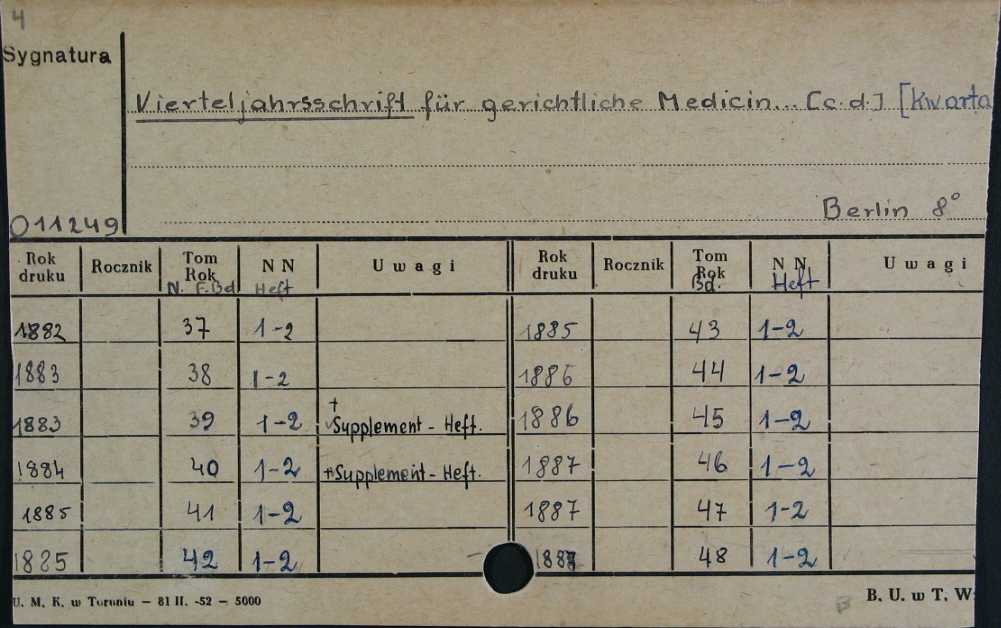 4
Sygnatura
Vierteljahrsschrift für gerichtliche Medicin... [c.d.] [Kwarta
Berlin 8°
011249
Rok druku Rocznik Tom Rok N. F. Bd. N N Heft Uwagi Rok druku Rocznik Tom Rok Bd. N N Heft Uwagi
1882 37 1-2 1885 43 1-2
1883 38 1-2 1886 44 1-2
1883 39 1-2 + Supplement - Heft. 1886 45 1-2
1884 40 1-2 + Supplement - Heft. 1887 46 1-2
1885 41 1-2 1887 47 1-2
1885 42 1-2 48 1-2
U. M. K. w Toruniu — 81 II. -52 — 5000
B. U. w T. W